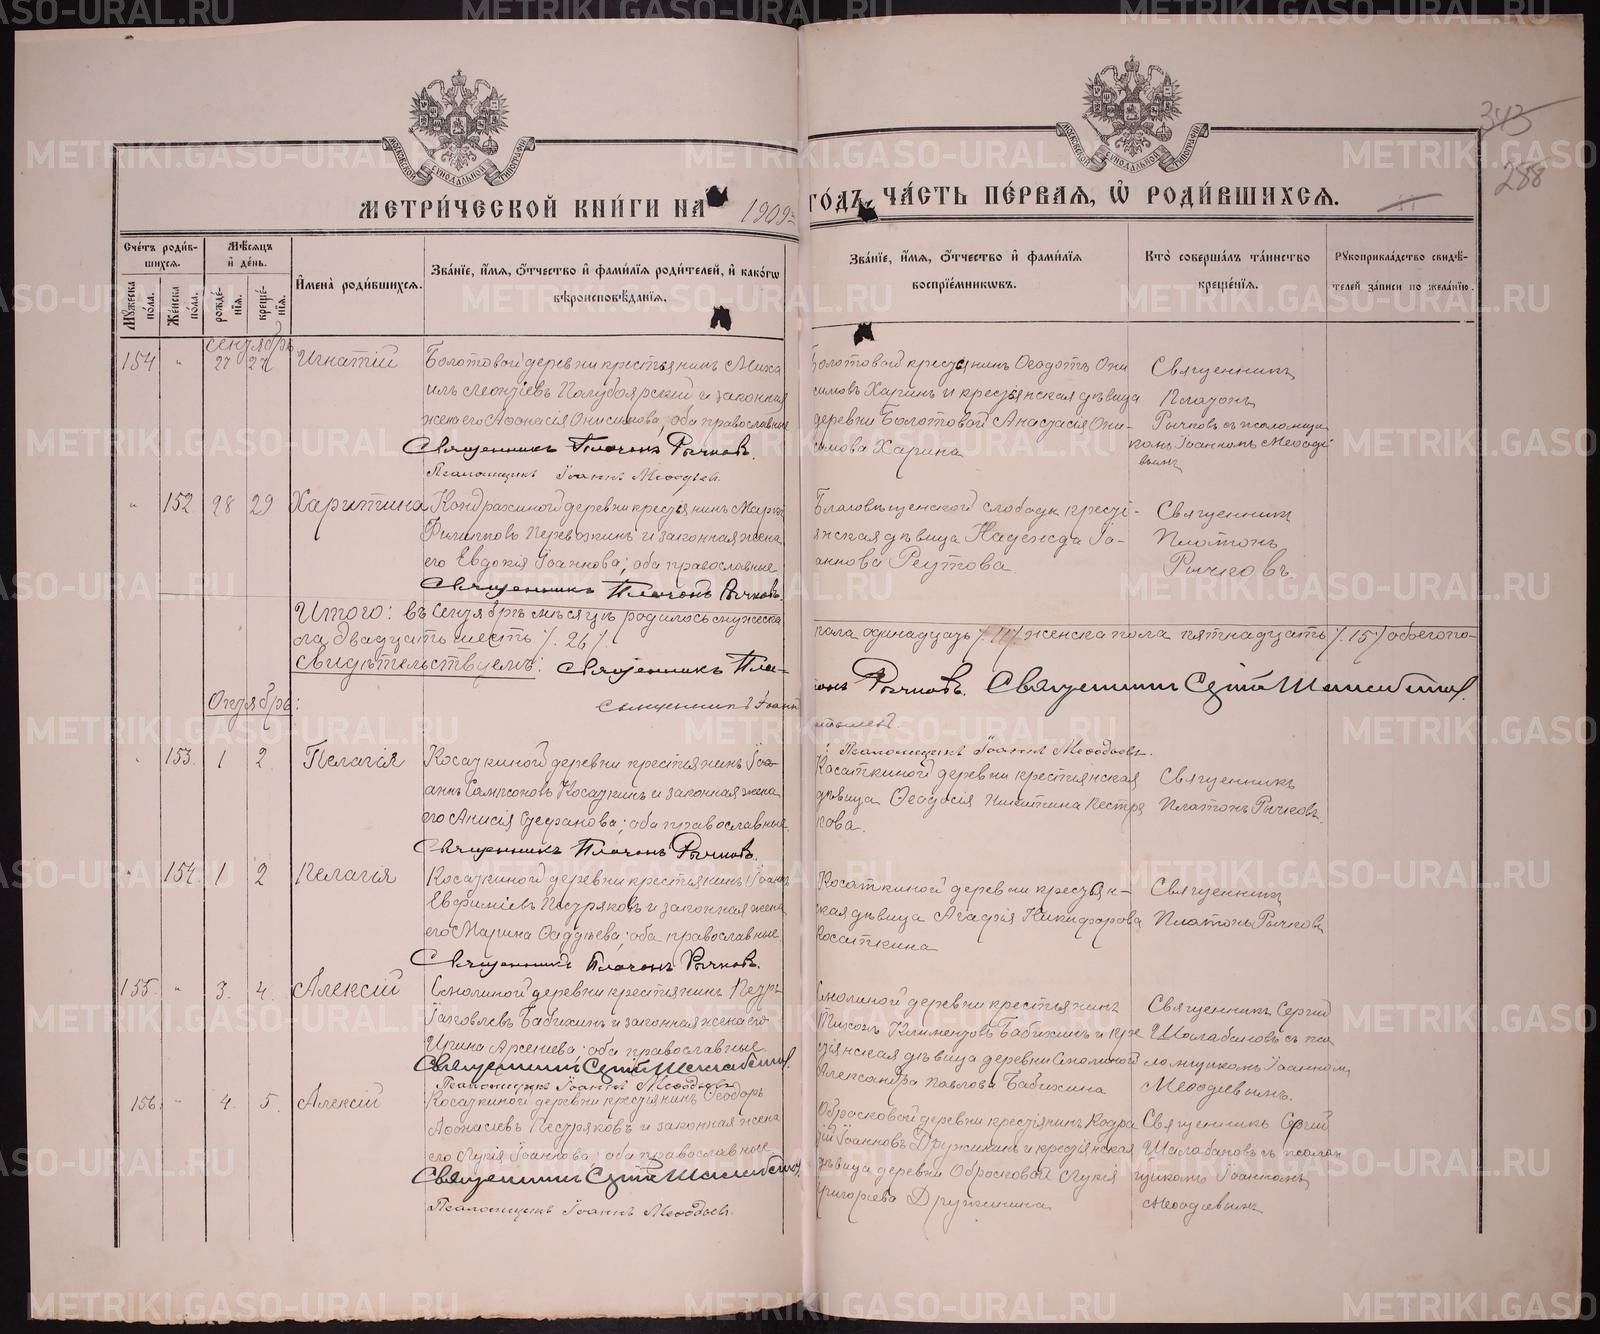 343
288
МЕТРИ́ЧЕСКОЙ КНИ́ГИ НА 1909 ГОДЪ, ЧА́СТЬ ПЕ́РВАЯ, Ѡ РОДИ́ВШИХСЯ.
Сче́тъ роди́вшихся.
Мѣ́сяцъ и҆ де́нь.
Му́жеска по́ла.
Же́нска по́ла.
рожде́нїя.
креще́нїя.
И҆мена̀ роди́вшихся.
Зва́нїе, и҆́мя, ѻ҆́тчество и҆ фами́лїя роди́телей, и҆ како́гѡ вѣроисповѣ́данїя.
Зва́нїе, и҆́мя, ѻ҆́тчество и҆ фами́лїя воспрїе́мникѡвъ.
Кто̀ соверша́лъ та́инство креще́нїя.
Рукоприкла́дство свидѣ́телей за́писи по жела́нїю.
сентябрь
154 " 27 27 Игнатій
Болотовой деревни крестьянинъ Миха
илъ Леонтіевъ Полубоярский и законная
жена его Афонасія Онисимова; оба православные
Священникъ Платонъ Рычковъ.
Псаломщикъ Іоаннъ Меѳодьев.
Болотовой крестьянинъ Ѳеодотъ Они
симовъ Харинъ и крестьянская дѣвица
деревни Болотовой Анастасія Они-
симова Харина
Священникъ
Платонъ
Рычковъ съ псаломщи
комъ Іоанномъ Меѳоді
вымъ
" 152 28 29 Харитина
Кондрахиной деревни крестьянинъ
Филипповъ Перевозкинъ и законная жена
его Евдокія Іоаннова; оба православные
Священникъ Платонъ Рычковъ.
Благовѣщенской слободы кресті-
янская дѣвица Надежда Іо-
аннова Реутова
Священникъ
Платонъ
Рычковъ.
Итого: въ Сентябрѣ мѣсяцѣ родилось мужеска
пола одинадцать /11/ женска пола пятнадцать /15/ обоего по-
ла двадцать шесть /26/
Свидѣтельствуемъ: Священникъ Пла-
тонъ Рычковъ. Священникъ Сергій Шалабановъ.
Священникъ Іоаннъ
Псаломщикъ Іоаннъ Меѳодьевъ.
Октябрь:
" 153. 1 2 Пелагія
Косаткиной деревни крестьянинъ Іоа-
аннъ Сампсоновъ Косаткинъ и законная жена
его Анисія Стефанова; оба православные.
Священникъ Платонъ Рычковъ.
Косаткиной деревни крестьянская
дѣвица Ѳеодосія Никитина Пестря
кова.
Священникъ
Платонъ Рычковъ.
" 154. 1 2 Пелагія
Косаткиной деревни крестьянинъ Іоаннъ
Евфиміевъ Пестряковъ и законная жена
его Марина Ѳаддѣева; оба православные.
Священникъ Платонъ Рычковъ.
Косаткиной деревни крестьян-
ская дѣвица Агафія Никифорова
Косаткина
Священникъ
Платонъ Рычковъ
155. " 3. 4. Алексій
Смолиной деревни крестьянинъ Петръ
Іаковлевъ Бабихинъ и законная жена его
Ирина Арсеніева; оба православные.
Священникъ Сергій Шалабановъ.
Псаломщикъ Іоаннъ Меѳодьевъ
Смолиной деревни крестьянинъ
Тихонъ Климентовъ Бабихинъ и кре
стіянская дѣвица деревни Смолиной
Александра Павлова Бабихина
Священникъ Сергій
Шалабановъ съ пса
ломщикомъ Іоанномъ
Меѳодіевымъ.
156. " 4. 5. Алексій
Косаткиной деревни крестьянинъ Ѳеодоръ
Афонасіевъ Пестряковъ и законная жена
его Лукія Іоаннова; оба православные
Священникъ Сергій Шалабановъ
Псаломщикъ Іоаннъ Меѳодьевъ.
Обросковой деревни крестіянинъ Кодра
тій Іоанновъ Дружининъ и крестіянская
дѣвица деревни Обросковой Лукія
Григоріева Дружинина
Священникъ Сергий
Шалабановъ съ псалом
щикомъ Іоанномъ
Меѳодіевымъ
METRIKI.GASO-URAL.RU